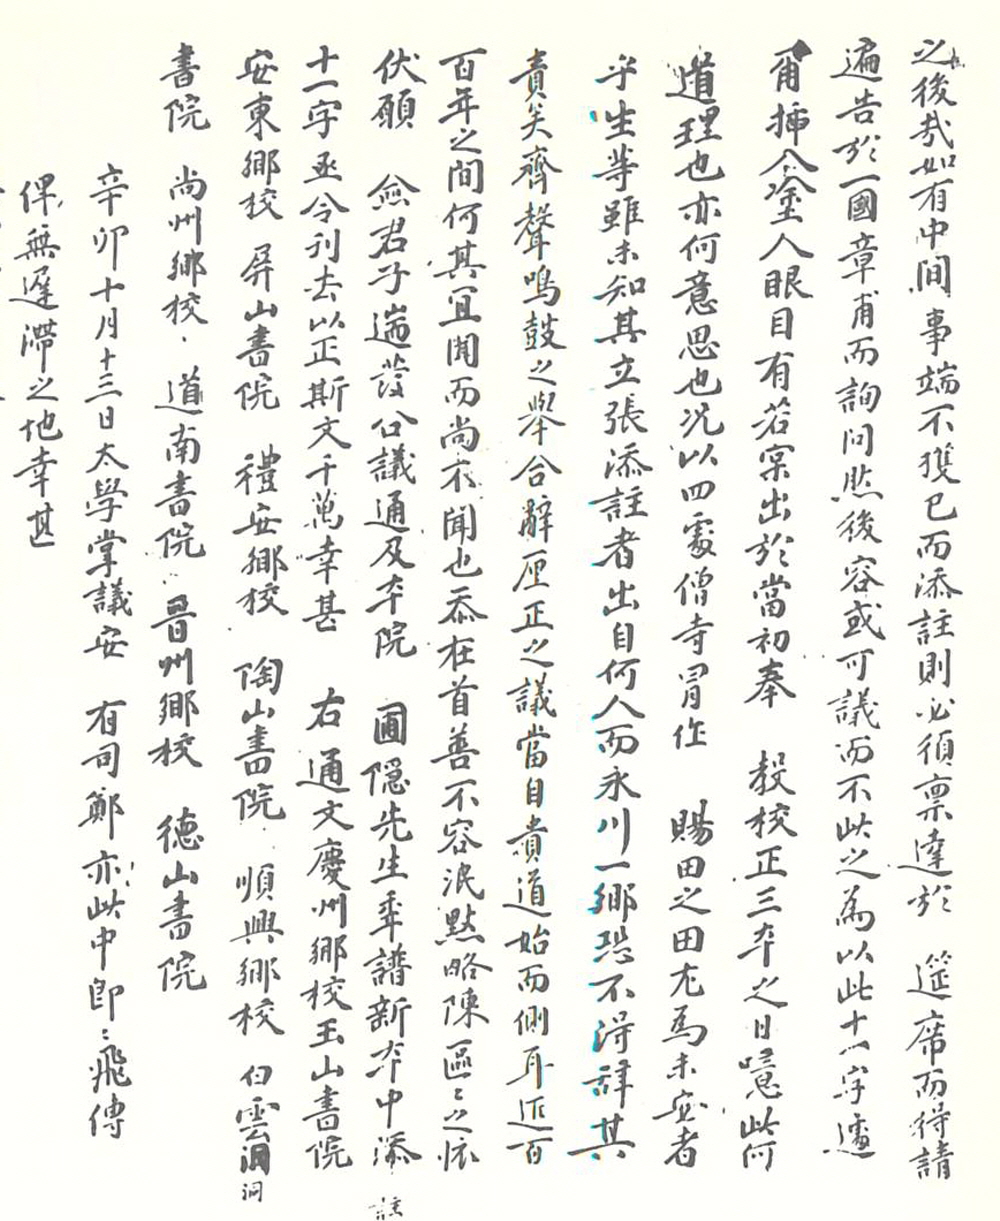 之後哉如有中間事端不獲已而添註則必須稟達於 筵席而得請
遍告於一國章甫而詢問然後容或可議而不此之爲以此十一字遽
爾揷入塗人眼目有若寀出於當初奉 敎校正三夲之日噫此何
道理也亦何意思也况以四處僧寺冒作 賜田之田尤爲未安者
乎生等雖未知其立張添註者出自何人而永川一鄕恐不得辞其
責矣齊聲鳴鼓之擧合辭厘正之議當自貴道始而側耳近百
百年之間何其宜聞而尚不聞也忝在首善不容泯黙略陳區〻之忱
伏願 僉君子耑發公議通及夲院 圃隱先生年譜新夲中添註
十一字亟令刊去以正斯文千萬幸甚 右通文慶州鄕校玉山書院
安東鄕校 屛山書院 禮安鄕校 陶山書院 順興鄕校 白雲洞洞
書院 尚州鄕校 道南書院 晋州鄕校 德山書院
辛卯十月十三日太學掌議安 有司鄭 亦此中卽〻飛傳
俾無遲滯之地幸甚